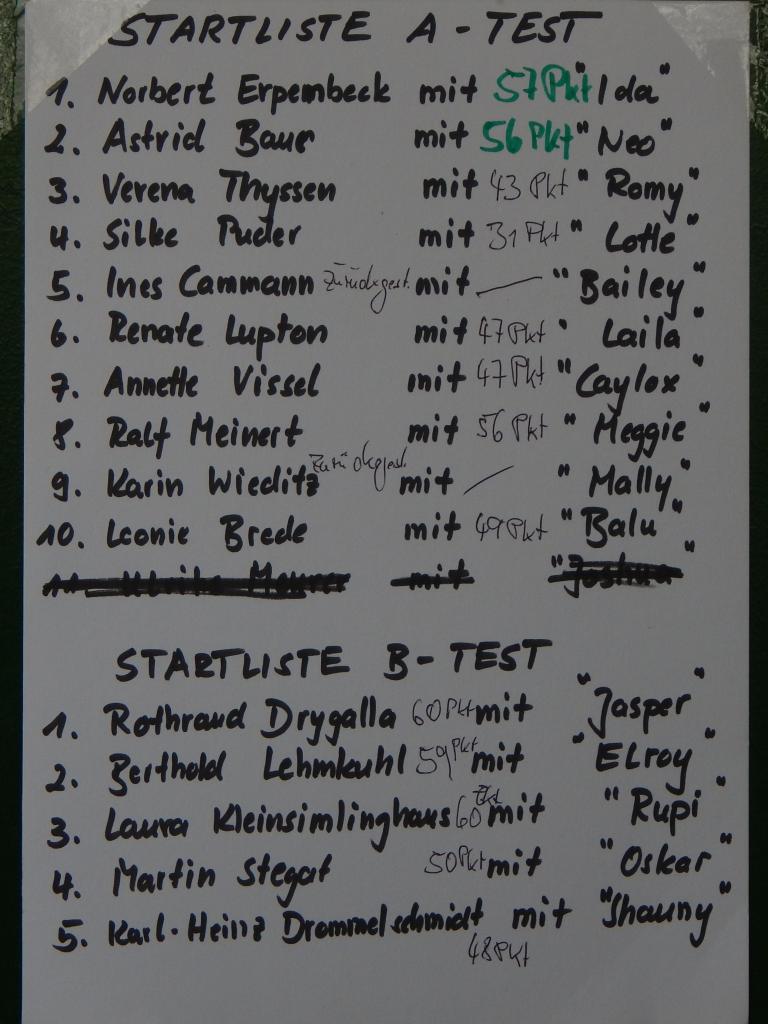 STARTLISTE A - TEST
1. Norbert Erpenbeck mit 57 Pkt "Ida"
2. Astrid Baur mit 56 Pkt "Neo"
3. Verena Thyssen mit 43 Pkt "Romy"
4. Silke Puder mit 31 Pkt "Lotte"
5. Ines Cammann zurückgest. mit — "Bailey"
6. Renate Lupton mit 47 Pkt "Laila"
7. Annette Vissel mit 47 Pkt "Caylox"
8. Ralf Meinert mit 56 Pkt "Meggie"
9. Karin Wieditz zurückgest. mit — "Mally"
10. Leonie Brede mit 49 Pkt "Balu"
11. Ulrike Meurer mit "Joshua"
STARTLISTE B - TEST
1. Rothraud Drygalla 60 Pkt mit "Jasper"
2. Berthold Lehmkuhl 59 Pkt mit "ELroy"
3. Laura Kleinsimlinghaus 60 Pkt mit "Rupi"
4. Martin Stegat 50 Pkt mit "Oskar"
5. Karl-Heinz Drommelschmidt mit "Shauny"
48 Pkt